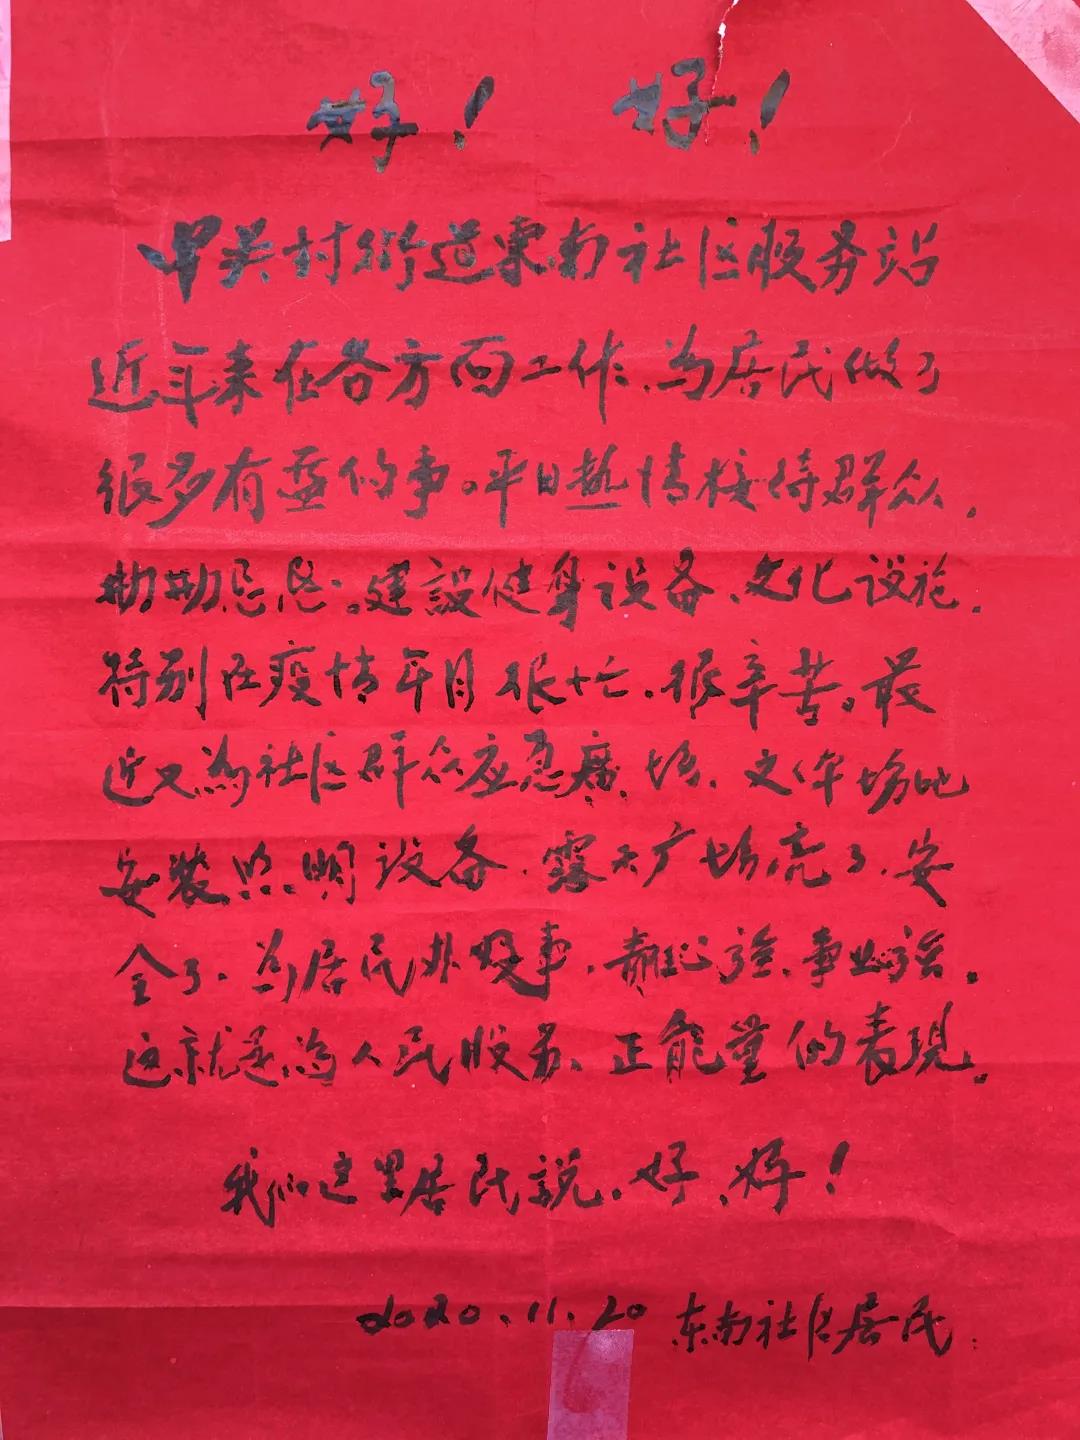 好！ 好！
中关村街道东南社区服务站
近年来在各方面工作、为居民做了
很多有益的事。平日热情接待群众，
勤勤恳恳。建設健身设备、文化设施。
特别在疫情年月很忙、很辛苦。最
近又為社区群众应急广场、文体场地
安装照明设备、露天广场亮了、安
全了、为居民办好事、责任心强、事业心强。
这就是為人民服务、正能量的表現。
我们这里居民説、好、好！
2020.11.20 东南社区居民